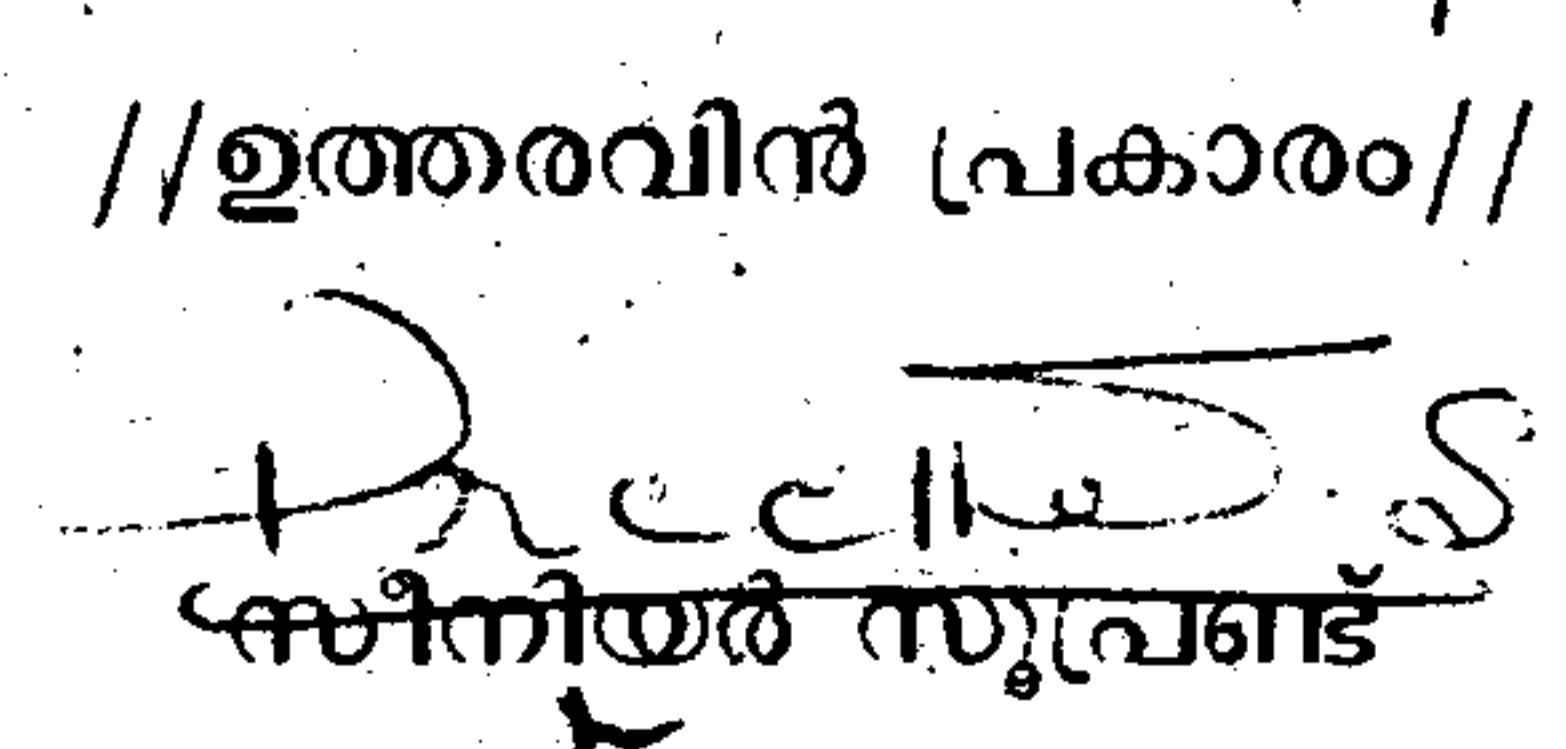 //ഉത്തരവിൻ പ്രകാരം//
സീനിയർ സൂപ്രണ്ട്